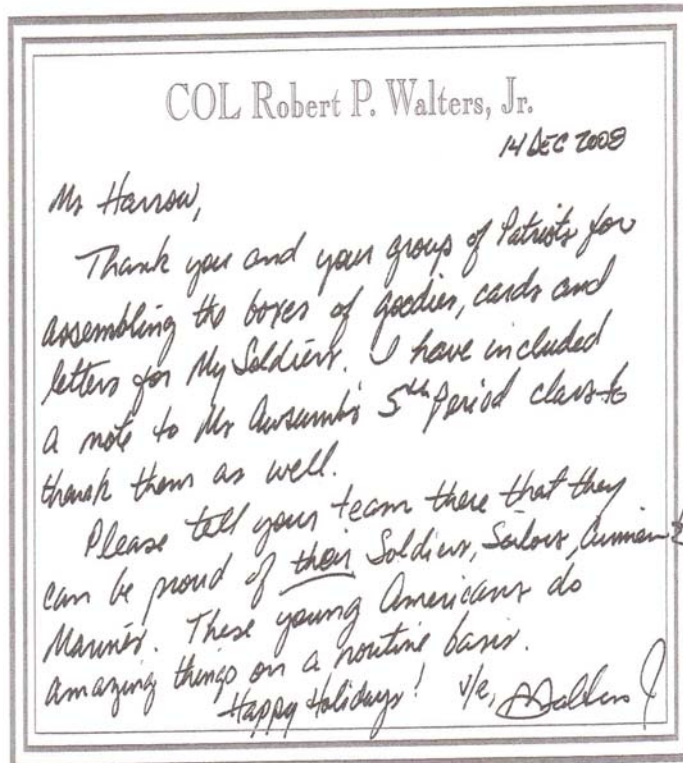 COL Robert P. Walters, Jr.
14 DEC 2008
Mr Harrow,
Thank you and your group of Patriots for
assembling the boxes of goodies, cards and
letters for My Soldiers. I have included
a note to Mr 5th Period class to
thank them as well.
Please tell your team there that they
can be proud of their Soldiers, Sailors, Airmen &
Marines. These young Americans do
amazing things on a routine basis.
Happy Holidays! v/r,